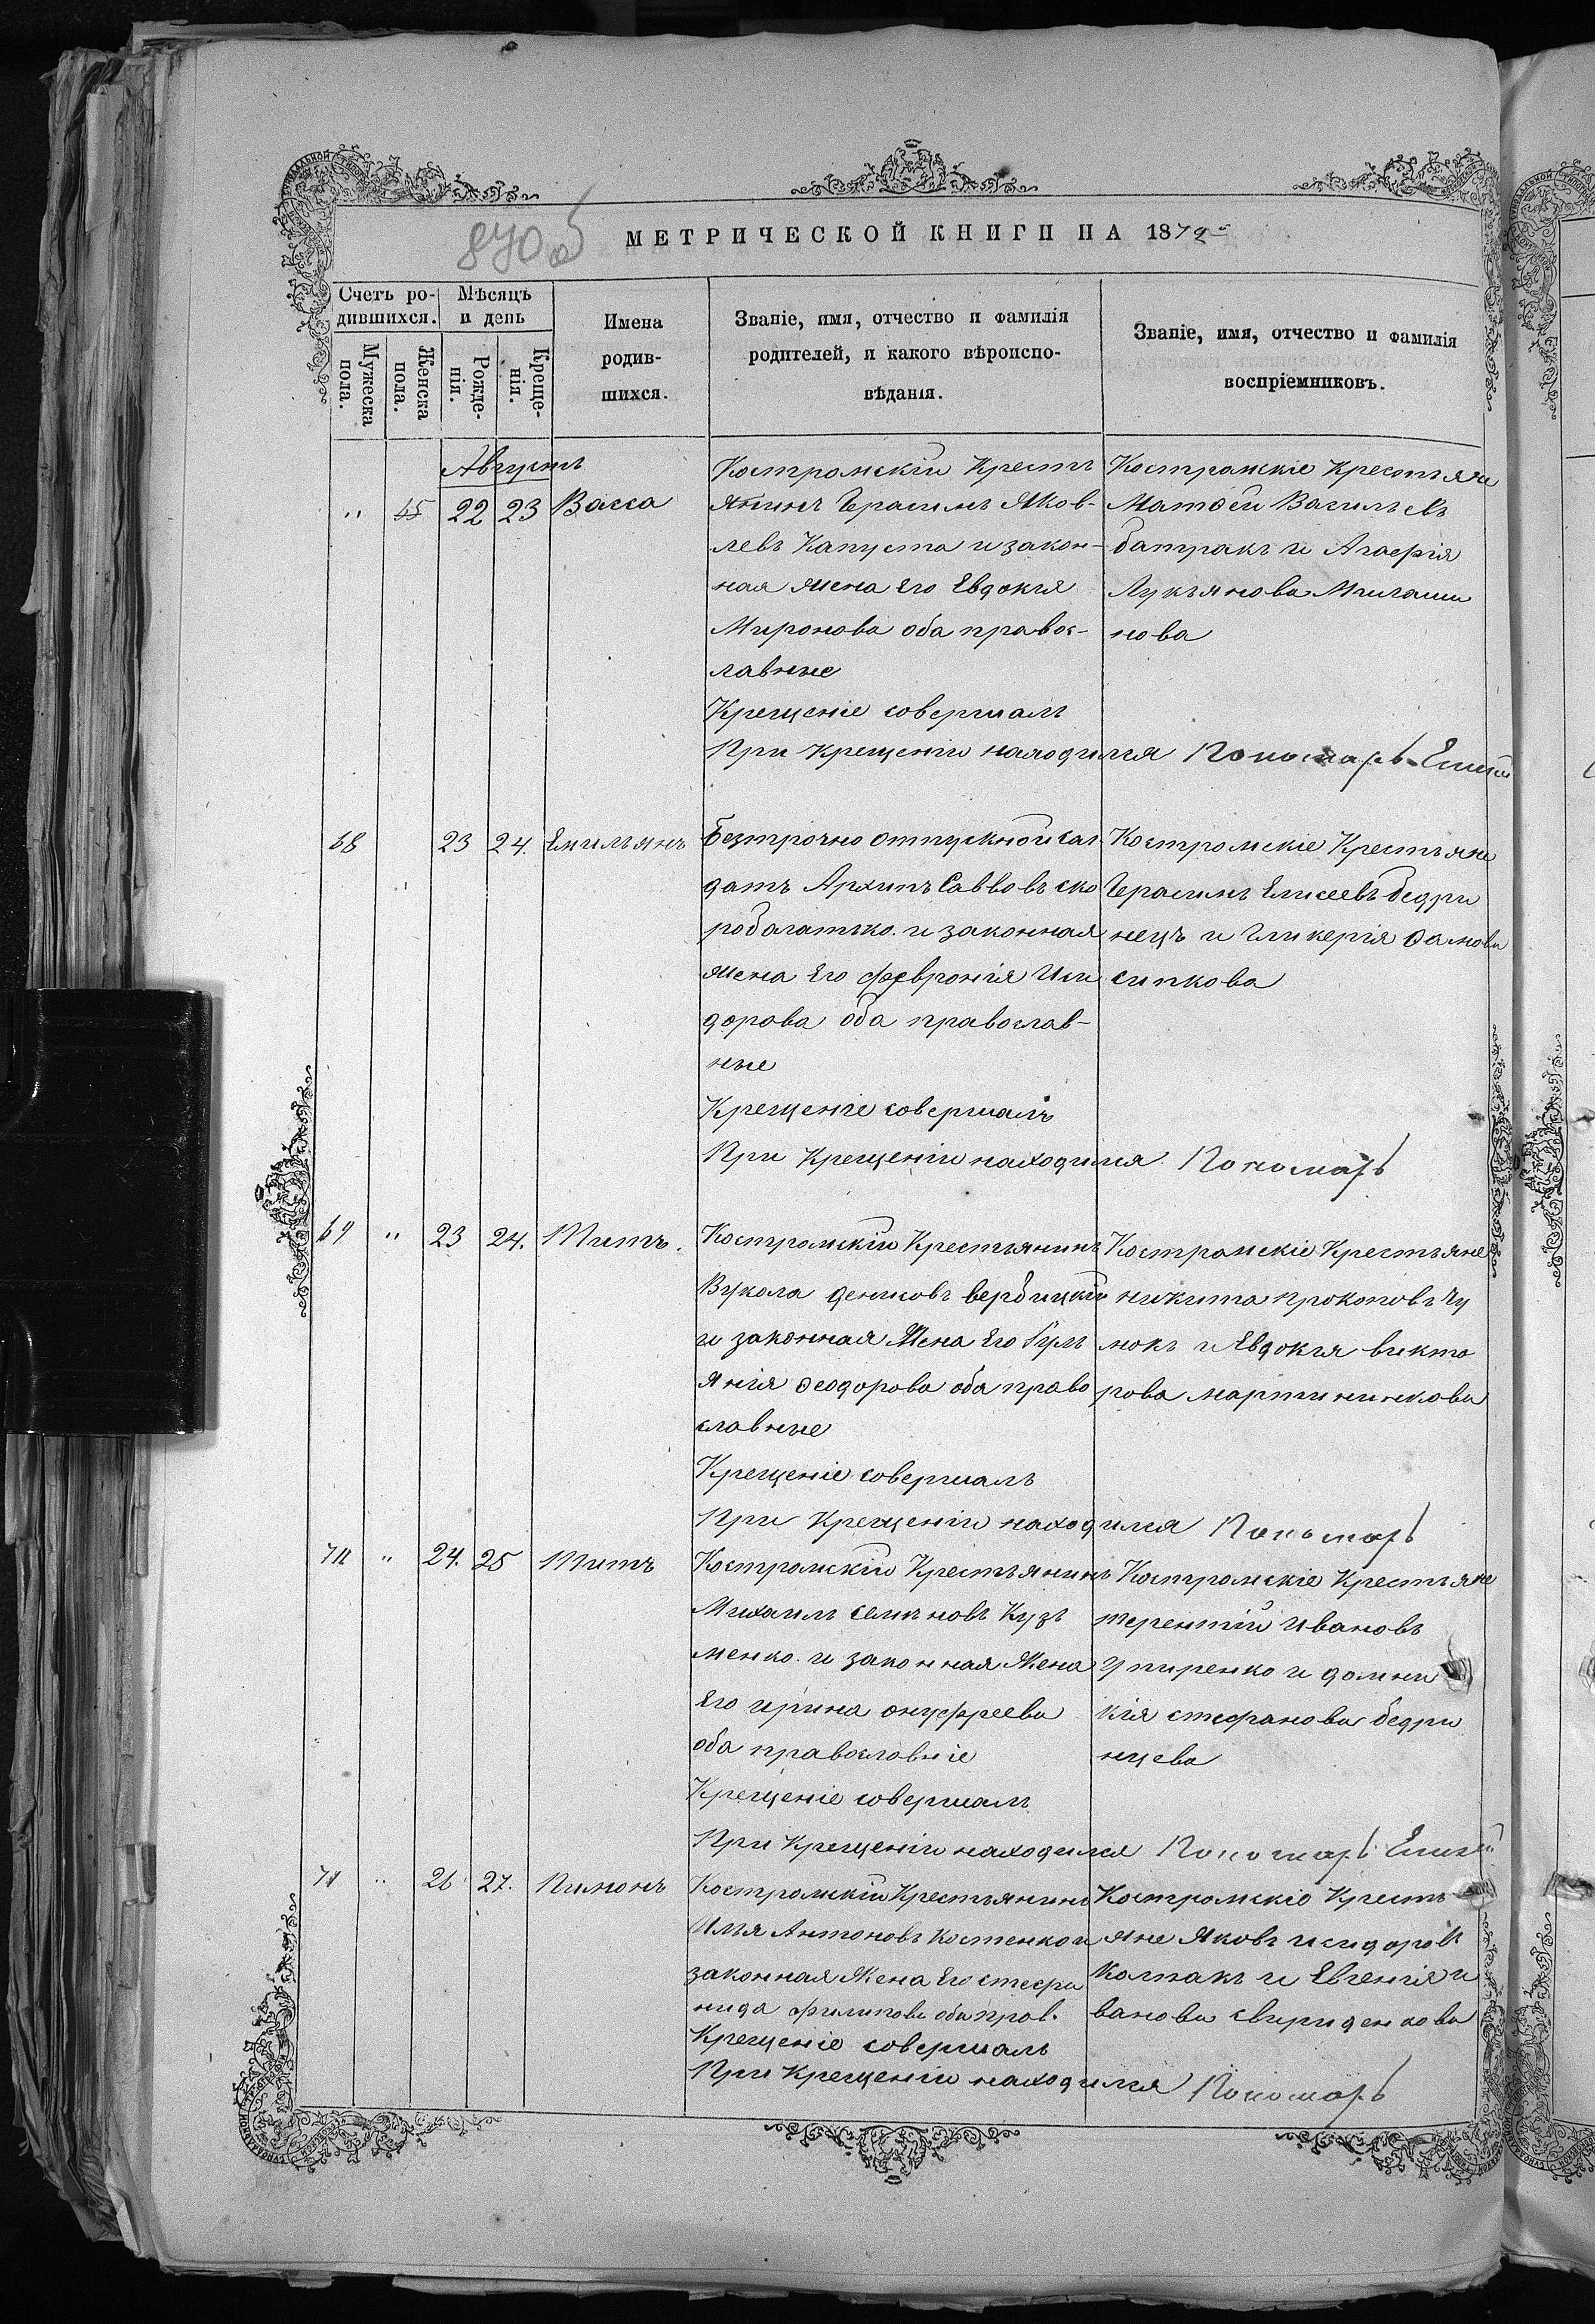 870об
МЕТРИЧЕСКОЙ КНИГИ НА 1872
Счетъ ро-
дившихся.
Мѣсяцъ
и день
Мужеска
пола.
Женска
пола.
Рожде-
нія.
Креще-
нія.
Имена
родив-
шихся.
Званіе, имя, отчество и фамилія
родителей, и какого вѣроиспо-
вѣданія.
Званіе, имя, отчество и фамилія
воспріемниковъ.
Августъ
" 65 22 23 Васса
Костромскій Кресть
янинъ Герасимъ Яков-
левъ Капуста и закон-
ная жена Его Евдокія
Миронова оба правос-
лавные
Крещеніе совершалъ
При крещеніи находился Пономарь
Костромскіе Крестьяне
Матѳей Васильевъ
батракъ и Агафія
Лукьянова
нова
68 23 24. Емильянъ
Безсрочно отпускной сол
датъ Архипъ Савовъ ско
робогатько. и законная
жена Его Февронія Иси
дорова оба православ-
ные
Крещеніе совершалъ
При Крещеніи находился Пономарь
Костромскіе Крестьяне
Герасимъ Елисеевъ бедри
нецъ и Гликерія
сипкова
69 " 23 24. Титъ.
Костромскій Крестьянинъ
Вукола вербицкій
и законная Жена Его Гуль
янія Ѳеодорова оба право
славные
Крещеніе совершалъ
При Крещеніи находился Пономарь
Костромскіе Крестьяне
никита прокоповъ Чу
мокъ и Евдокія викто
рова мартиникова
70 " 24. 25 Титъ
Костромскій Крестьянинъ
Михаилъ семеновъ Кузь
менко. и законная Жена
Его ирина онуфреева
оба православніе
Крещеніе совершалъ
При Крещеніи находился Пономарь
Костромскіе Крестьяне
терентій ивановъ
упиренко и домни
кія стефанова бедри
нцева
71 " 26 27. Пимонъ
Костромскій Крестьянинъ
Илья Антоновъ Костенко и
законная Жена Его стефа
нида филипова оба прав.
Крещеніе совершалъ
При Крещеніи находился Пономарь
Костромскіе Кресть
яне Яковъ исидоровъ
Колпакъ и Евгенія и
ванова свириденкова